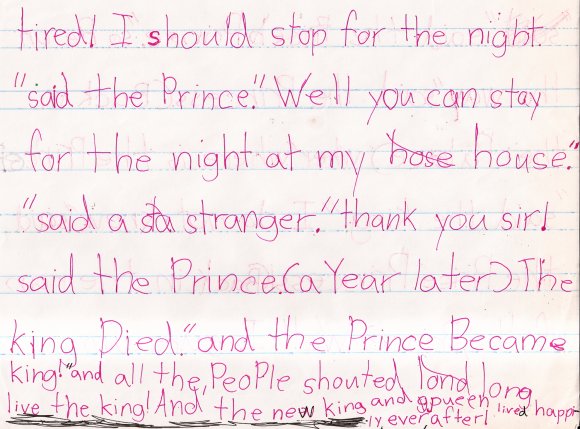 tired! I should stop for the night.
"said the Prince." Well you can stay
for the night at my hose house."
"said a sta stranger." thank you sir!
said the Prince.(a Year later) The
king Died." and the Prince Became
king!" and all the PeoPle shouted, lond long
live the king! And, the new king and qpueen lived happi-
ly ever after!